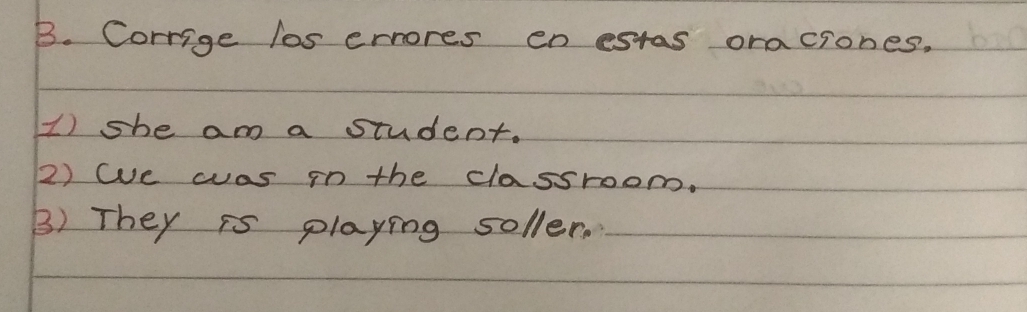 B. Corrige los errores en estas oraciones.
1) She am a student.
2) We was in the classroom.
3) They is playing soller.